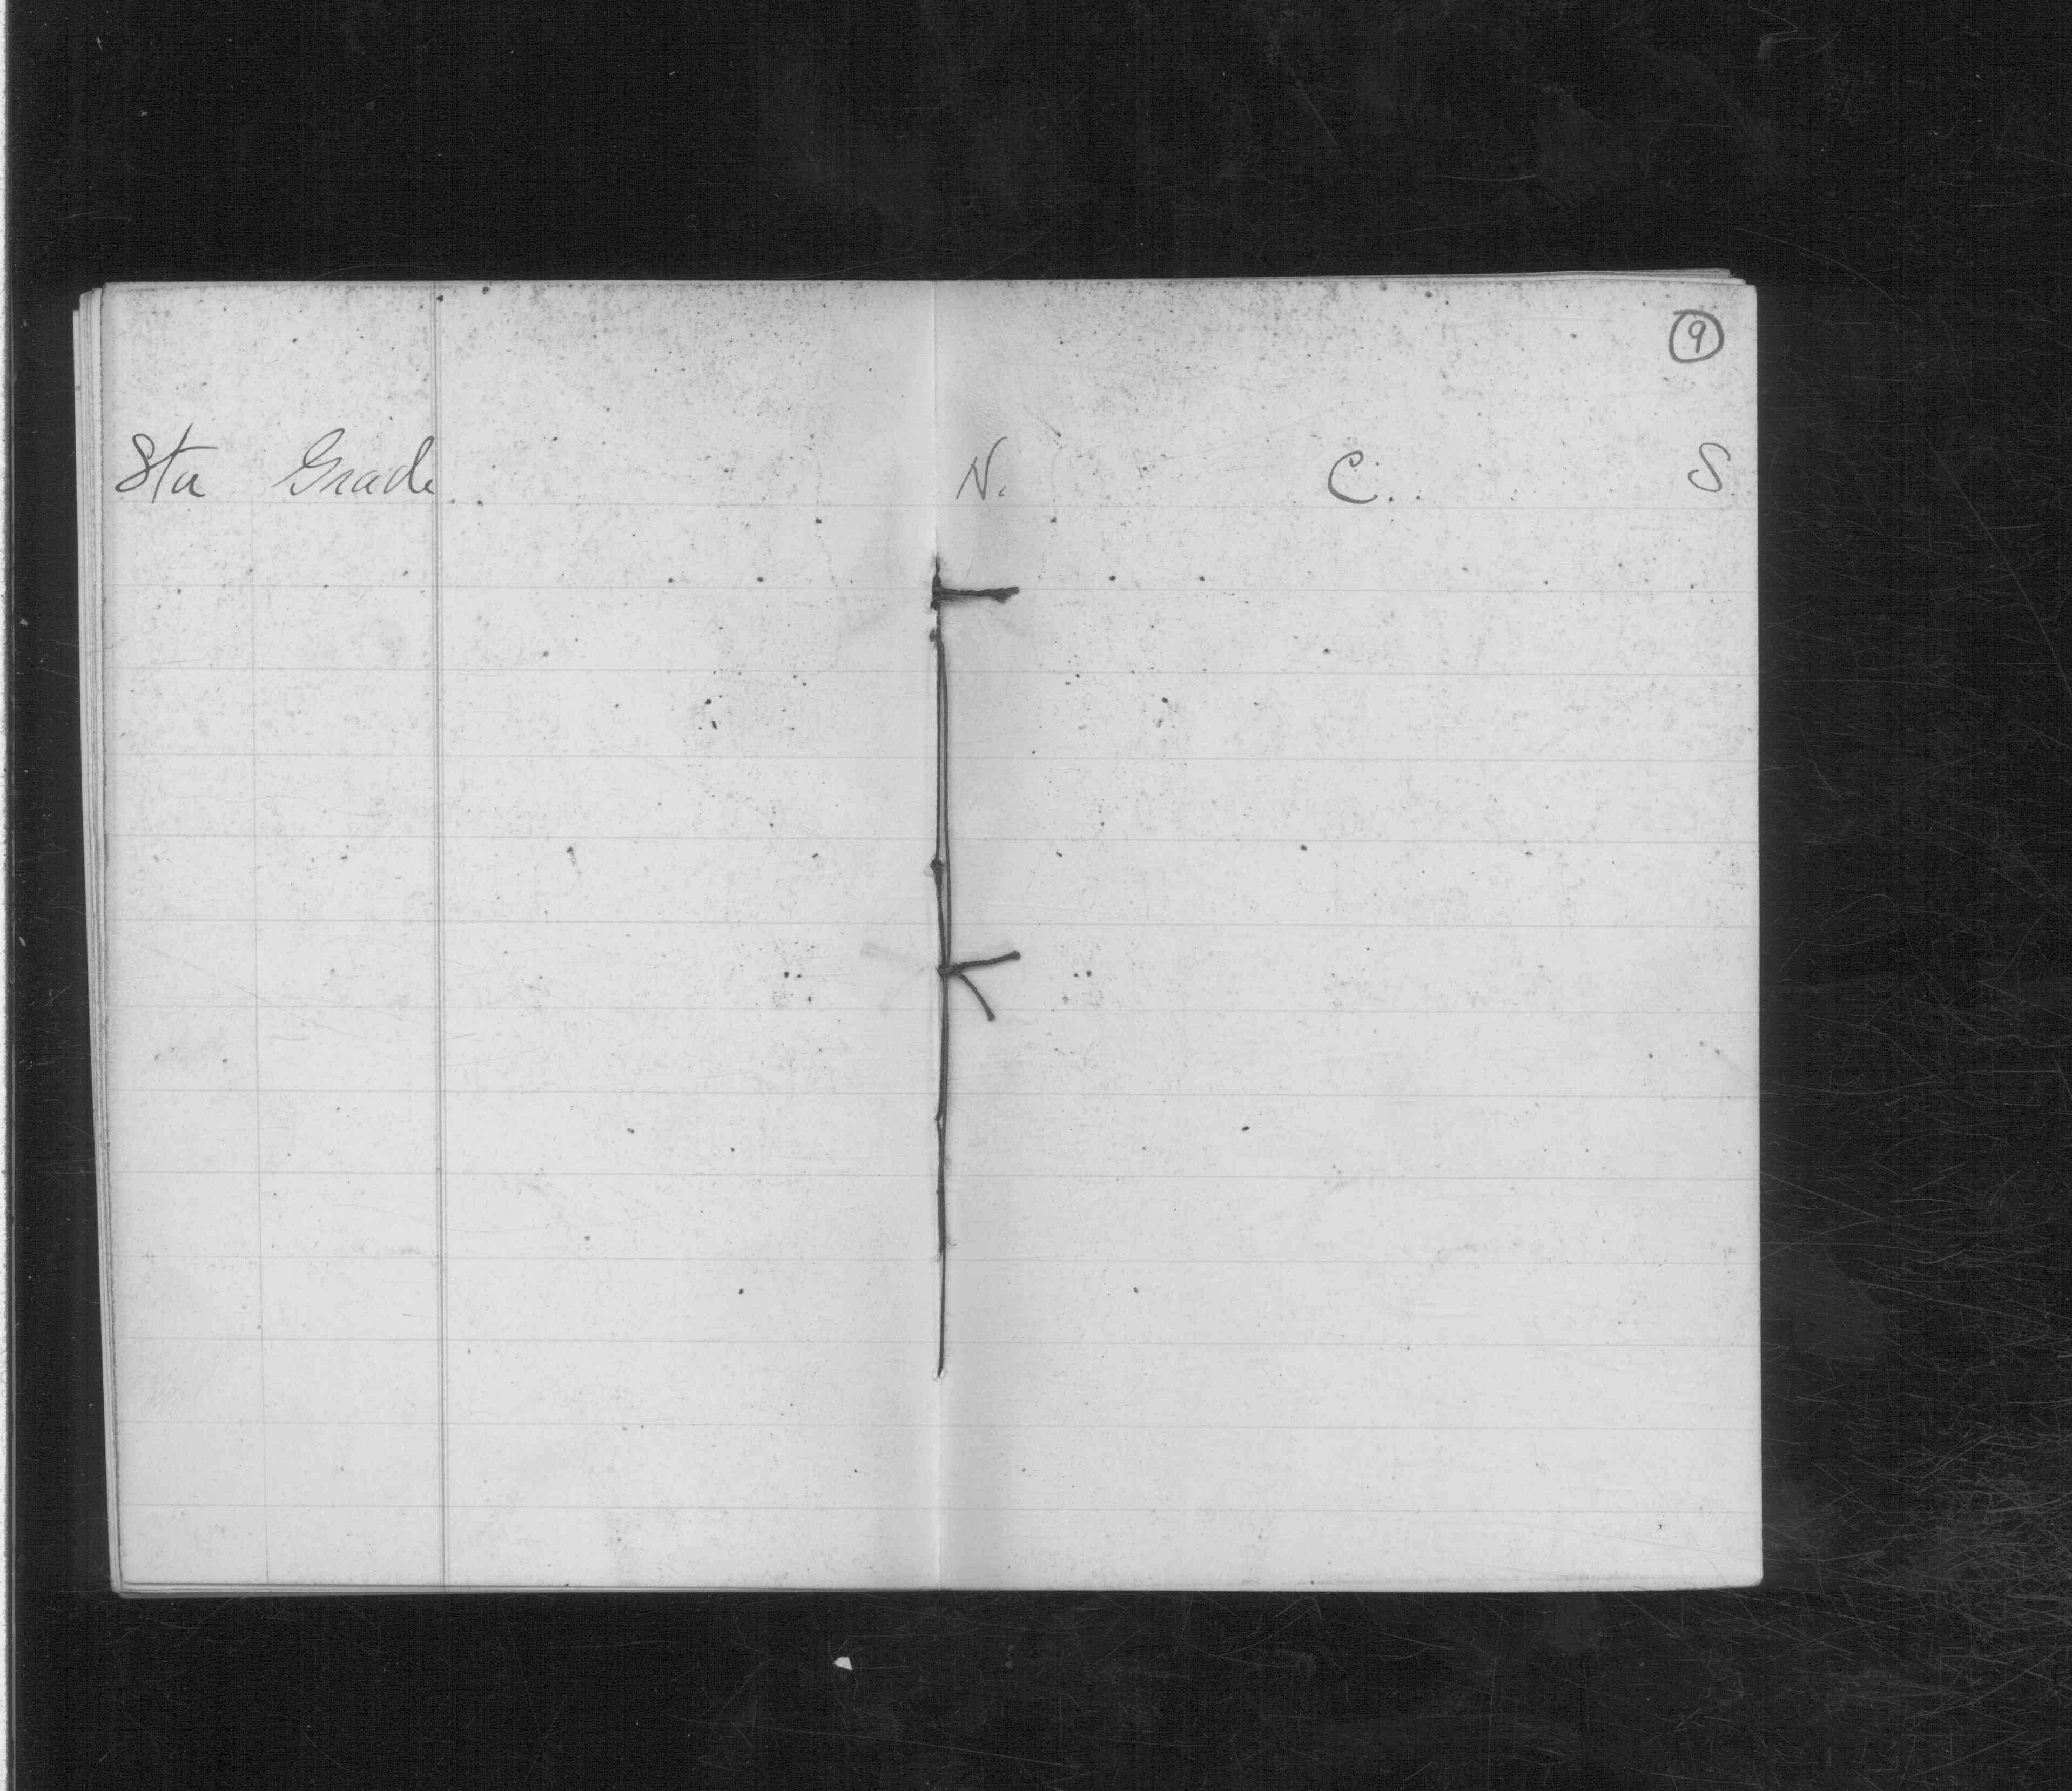 9
Sta Grade. N. C. S.